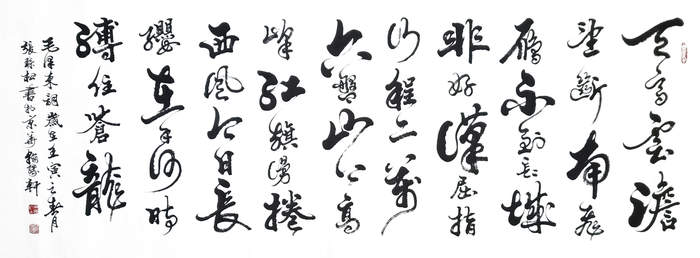 天高雲澹
望斷南飛
雁不到長城
非好漢屈指
行程二萬
六盤山上高
峰紅旗漫捲
西風今日長
纓在手何時
縛住蒼龍
毛澤東詞歲在壬寅之春月
張松書於京華翰軒